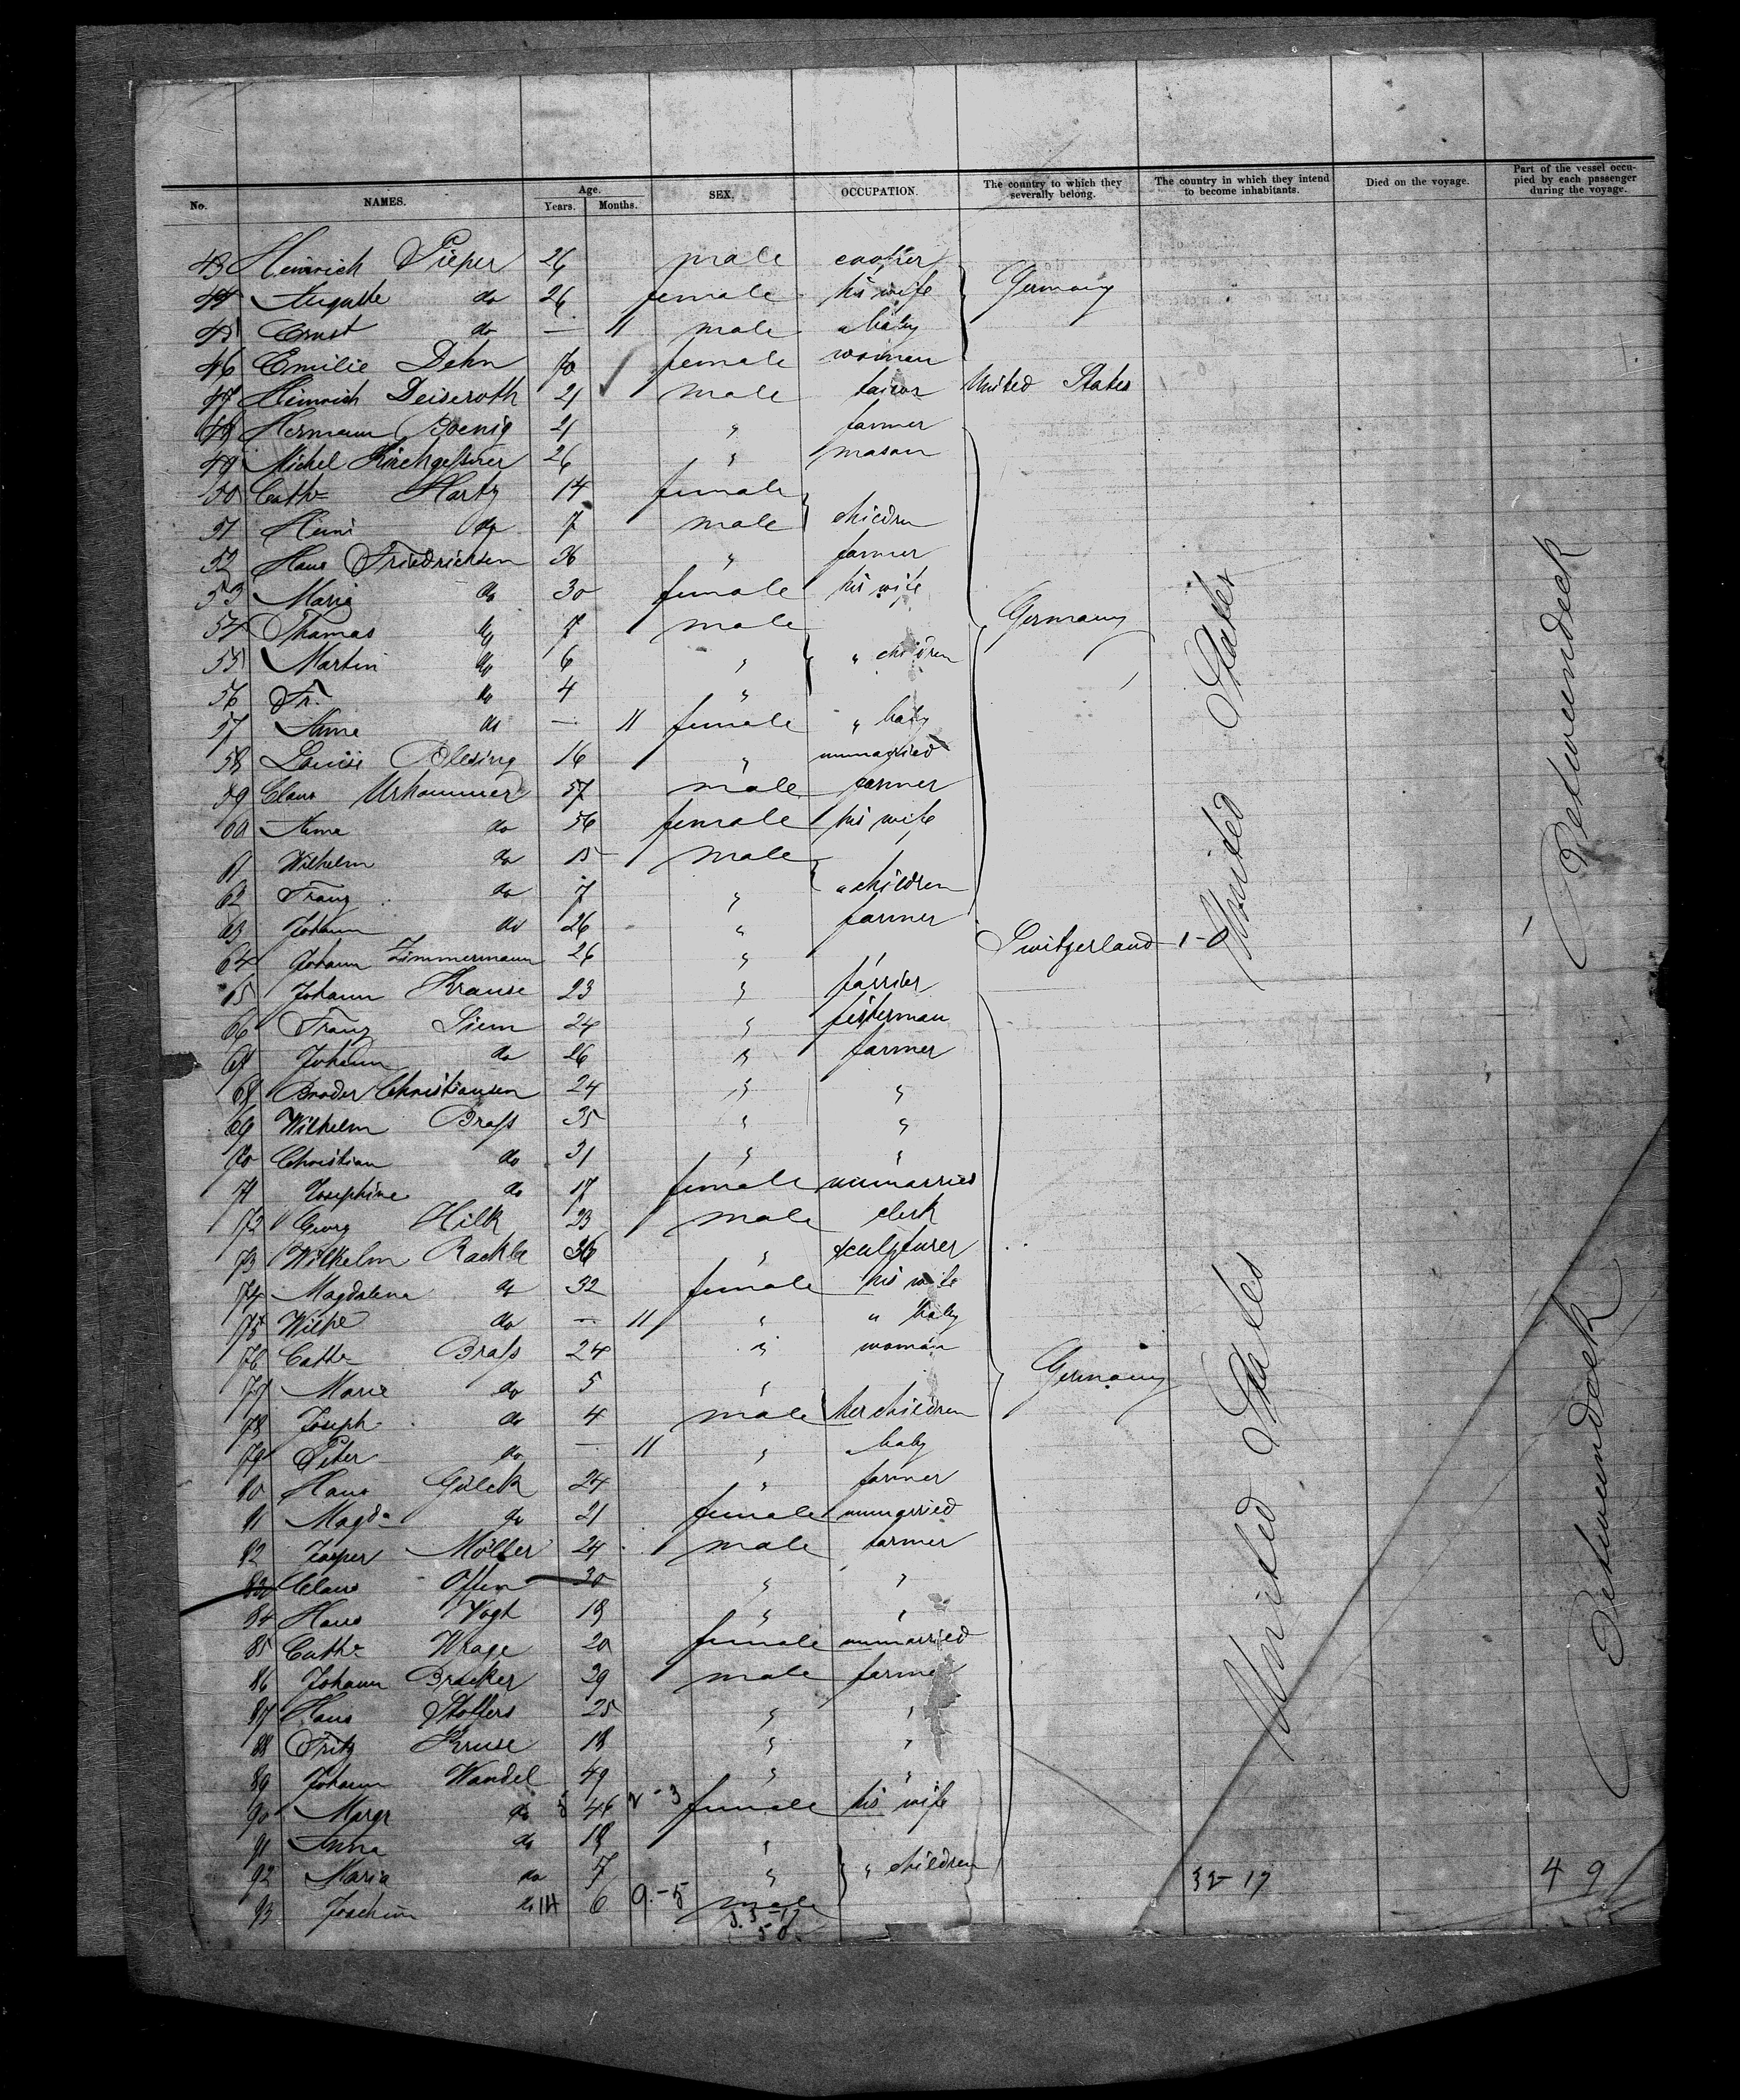 No. NAMES. Age. Years. Months. SEX. OCCUPATION. The country to which they severally belong. The country in which they intend to become inhabitants. Died on the voyage. Part of the vessel occupied by each passenger during the voyage.
43 Heinrich Pieper 26 male
44 Auguste do 26 female his wife Germany
45 Ernst do — 11 male " baby
46 Emilie Dehn female woman
47 Heinrich Deiseroth 21 male United States
48 Hermann Boenig 21 " farmer
49 Michel Kirchgeßner 26 " mason
50 Cathe Hartz 14 female
51 Heinr do 7 male children
52 Hans Friedrichsen 36 " farmer
53 Marie do 30 female his wife
54 Thomas do 7 male Germany
55 Martin do 6 " " children
56 Fr. do 4 "
57 Anna do — 11 female " baby
58 Louise Blesing 16 " unmarried
59 Claus Urhammer 57 male farmer
60 Anna do 56 female his wife
61 Wilhelm do 15 male
62 Franz do 7 " " children
63 Johann do 26 " farmer
64 Johann Zimmermann 26 " " Switzerland 1-0
65 Johann Krause 23 " farrier
66 Franz Siem 24 " fisherman
67 Johann do 26 " farmer
68 Broder Christiansen 24 " "
69 Wilhelm Braß 35 " "
70 Christian do 31 " "
71 Josephine do 17 female unmarried
72 Georg Hilk 23 male clerk
73 Wilhelm Rackle 36 " sculpturer
74 Magdalena do 32 female his wife
75 Wilhe do — 11 " " baby
76 Cathe Braß 24 " woman
77 Marie do 5 " Germany
78 Joseph do 4 male her children
79 Peter do — 11 " " baby
80 Hans Gülck 24 " farmer
81 Magda do 21 female unmarried
82 Jasper Möller 24 male farmer
83 Claus Offen 30 " "
84 Hans Vogt 18 " "
85 Cathe Wrage 20 female unmarried
86 Johann Bracker 29 male farmer
87 Hans Stoffers 25 " "
88 Fritz Kruse 18 " "
89 Johann Wandel 49 " "
90 Margr do 46 female his wife
91 Anna do 18 "
92 Maria do 7 " " children 32-17 49
93 Joachim do 6 9-5 male
United States
United States
Betweendeck
Betweendeck